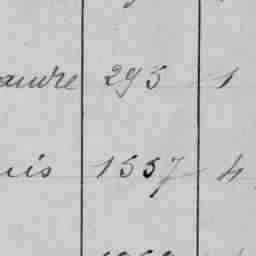 andre 295 1
uis 1557 4